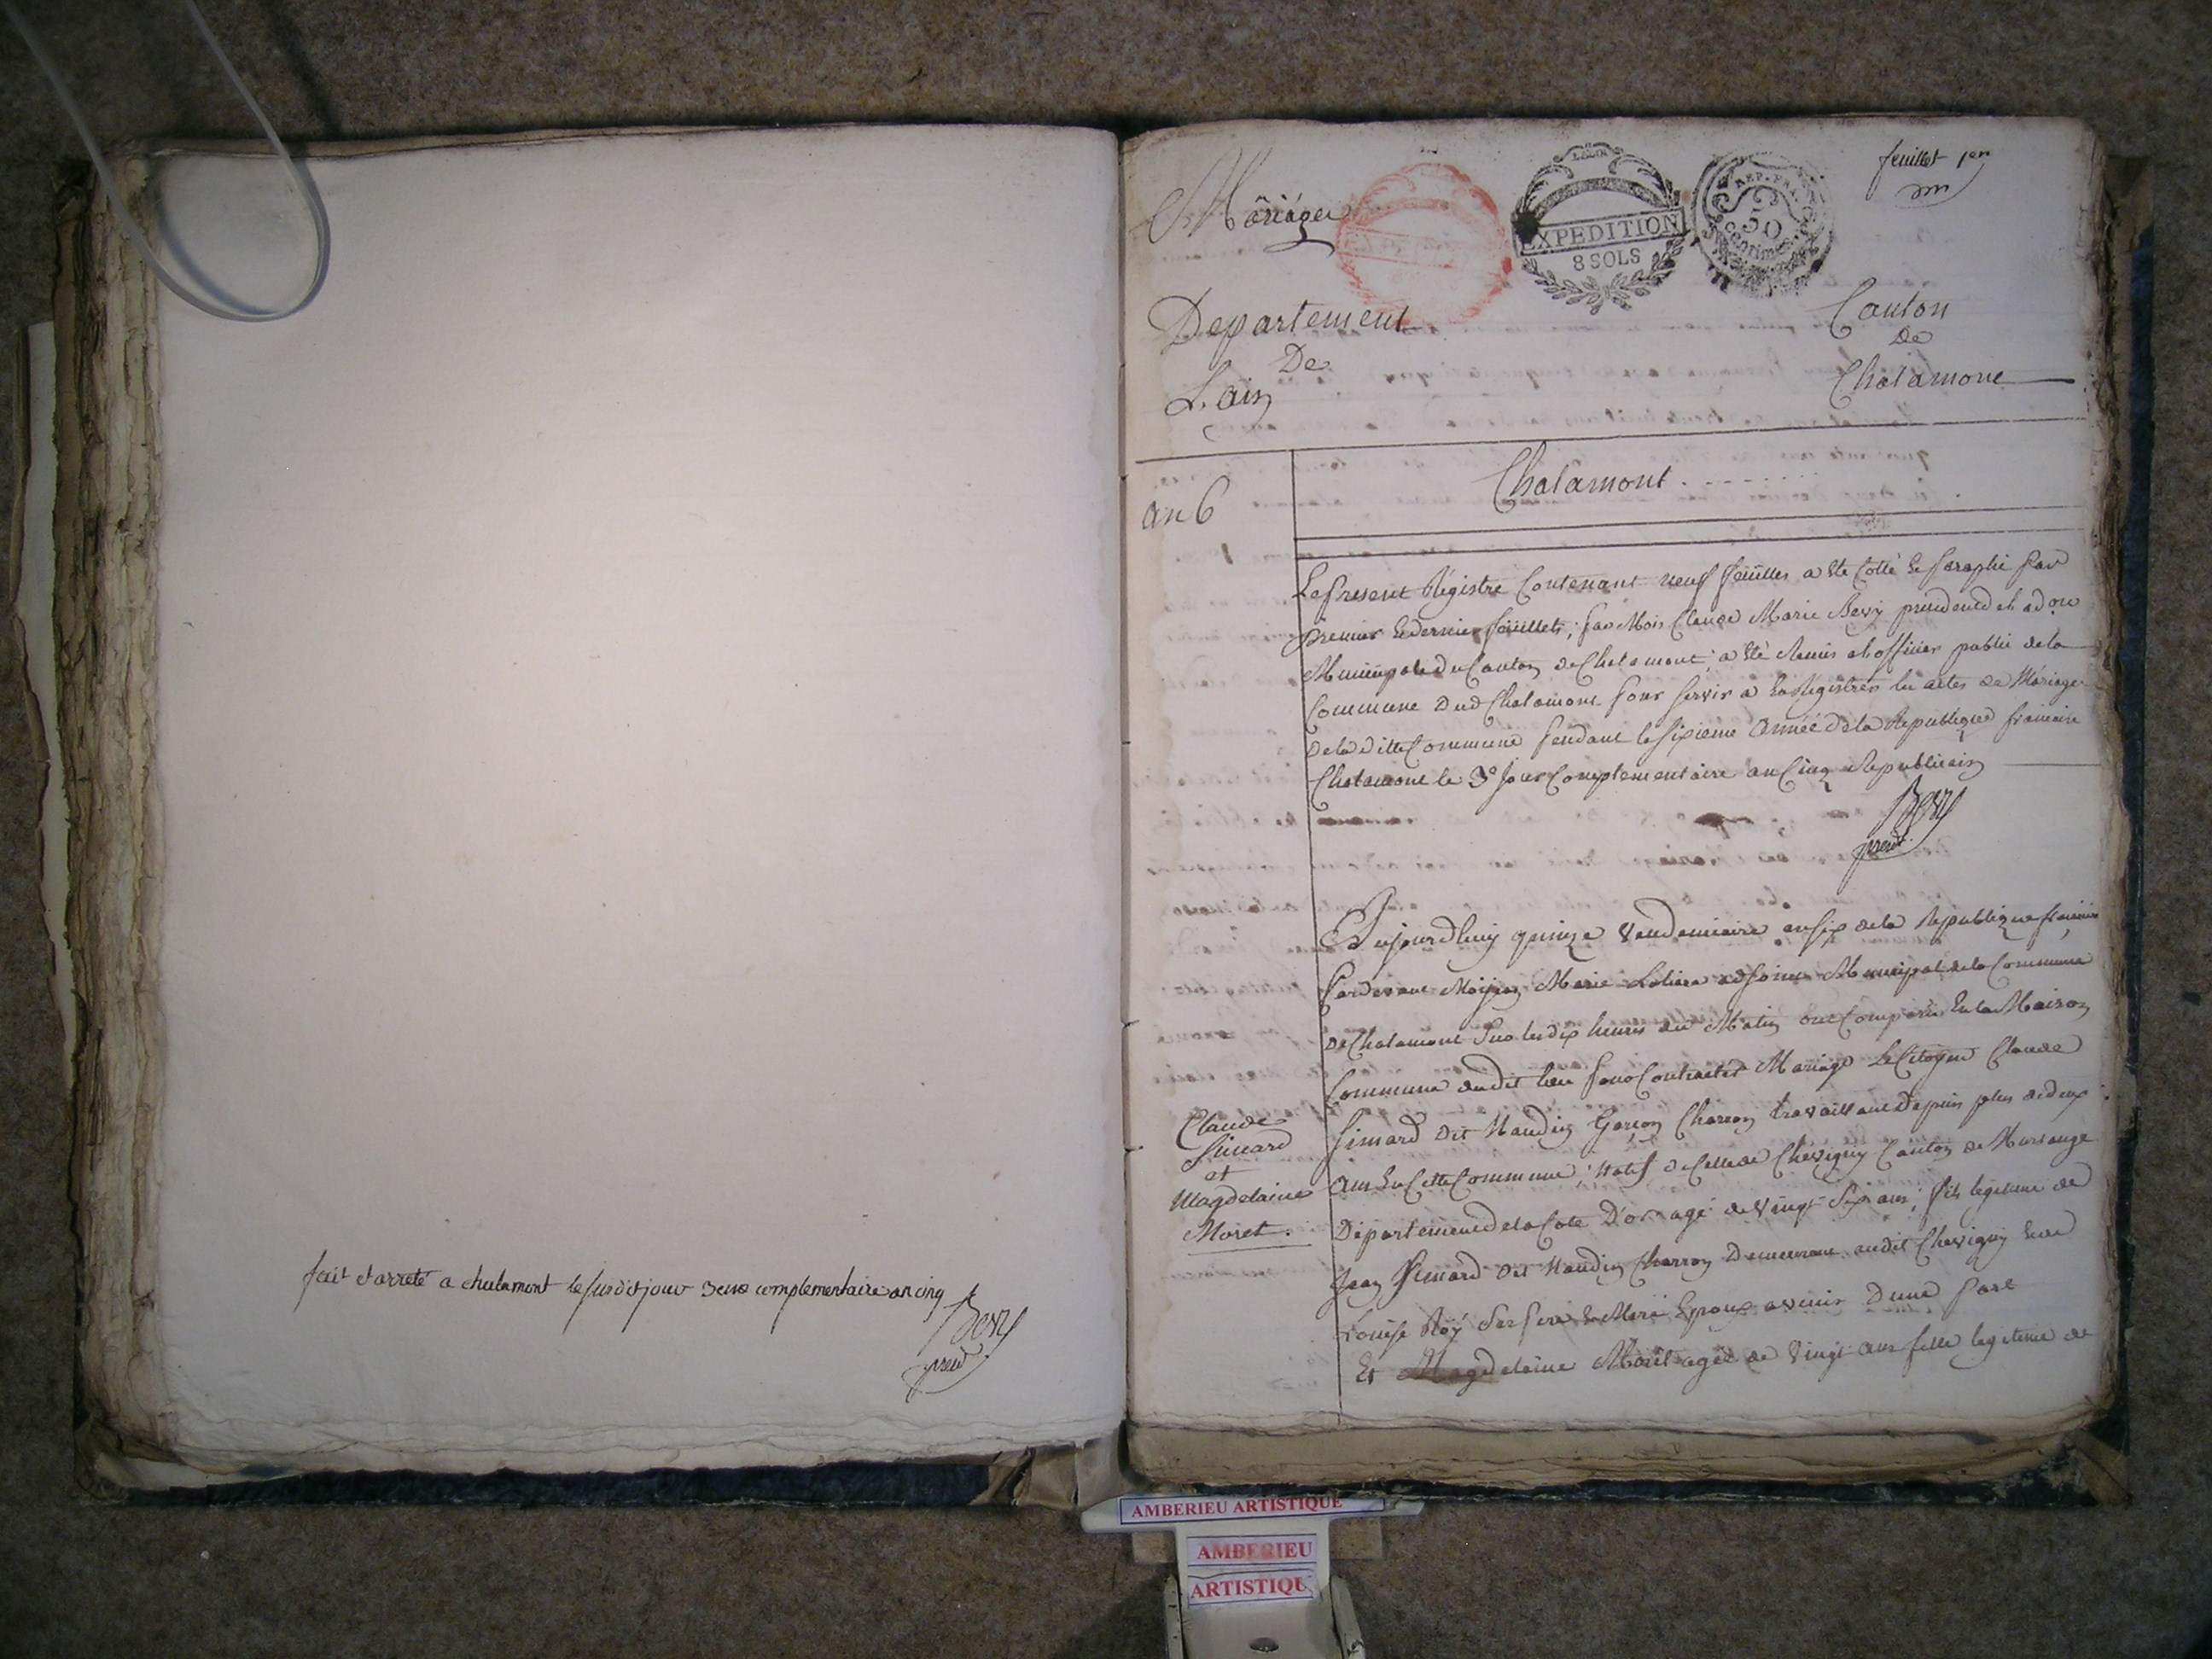 fait et arreté a chalamont le susdit jour 3eme complementaire an cinq
Bevy
presid.
Mariages
feuillet 1er
EXPEDITION
8 SOLS
REP. FRA.
50
centimes
Departement
De
L'ain
Canton
de
Chalamont
an 6
Chalamont
Le present Régistre Contenant neuf feüilles a été Cotté et paraphé par
premier et dernier feüillets, par Moi Claude Marie Bevy president de l'ad.on
Municipale du Canton de Chalamont, a été Remis a l'officier public de la
Commune dud Chalamont pour servir a En Régistrer les actes de Mariage
de la ditte Commune pendant la sixieme année de la Republique francaise
Chalamont le 3e Jour Complementaire an Cinq Republicain
Bevy
presid.
Aujourd'huy quinze Vendemiaire an six de la Republique francaise
Pardevant Moyse Marie adjoint Municipal de la Commune
de Chalamont sur les dix heures du Matin ont Comparu En la Maison
Commune dudit lieu pour Contracter Mariage Le Citoyen Claude
Simard dit Naudin Garçon Charron travaillant depuis plus de deux
ans En Cette Commune, Natif de Celle de Chevigny Canton de
Département de la Cote D'or agé de Vingt Six ans, fils legitime de
Jean Simard dit Naudin Charron Demeurant audit Chevigny Et de
Louise Roÿ Ses pere Et Mere Epoux avenir D'une part
Et Magdelaine Moret agée de Vingt ans fille legitime de
Claude
Simard
et
Magdelaine
Moret.
AMBERIEU ARTISTIQUE
AMBERIEU
ARTISTIQU